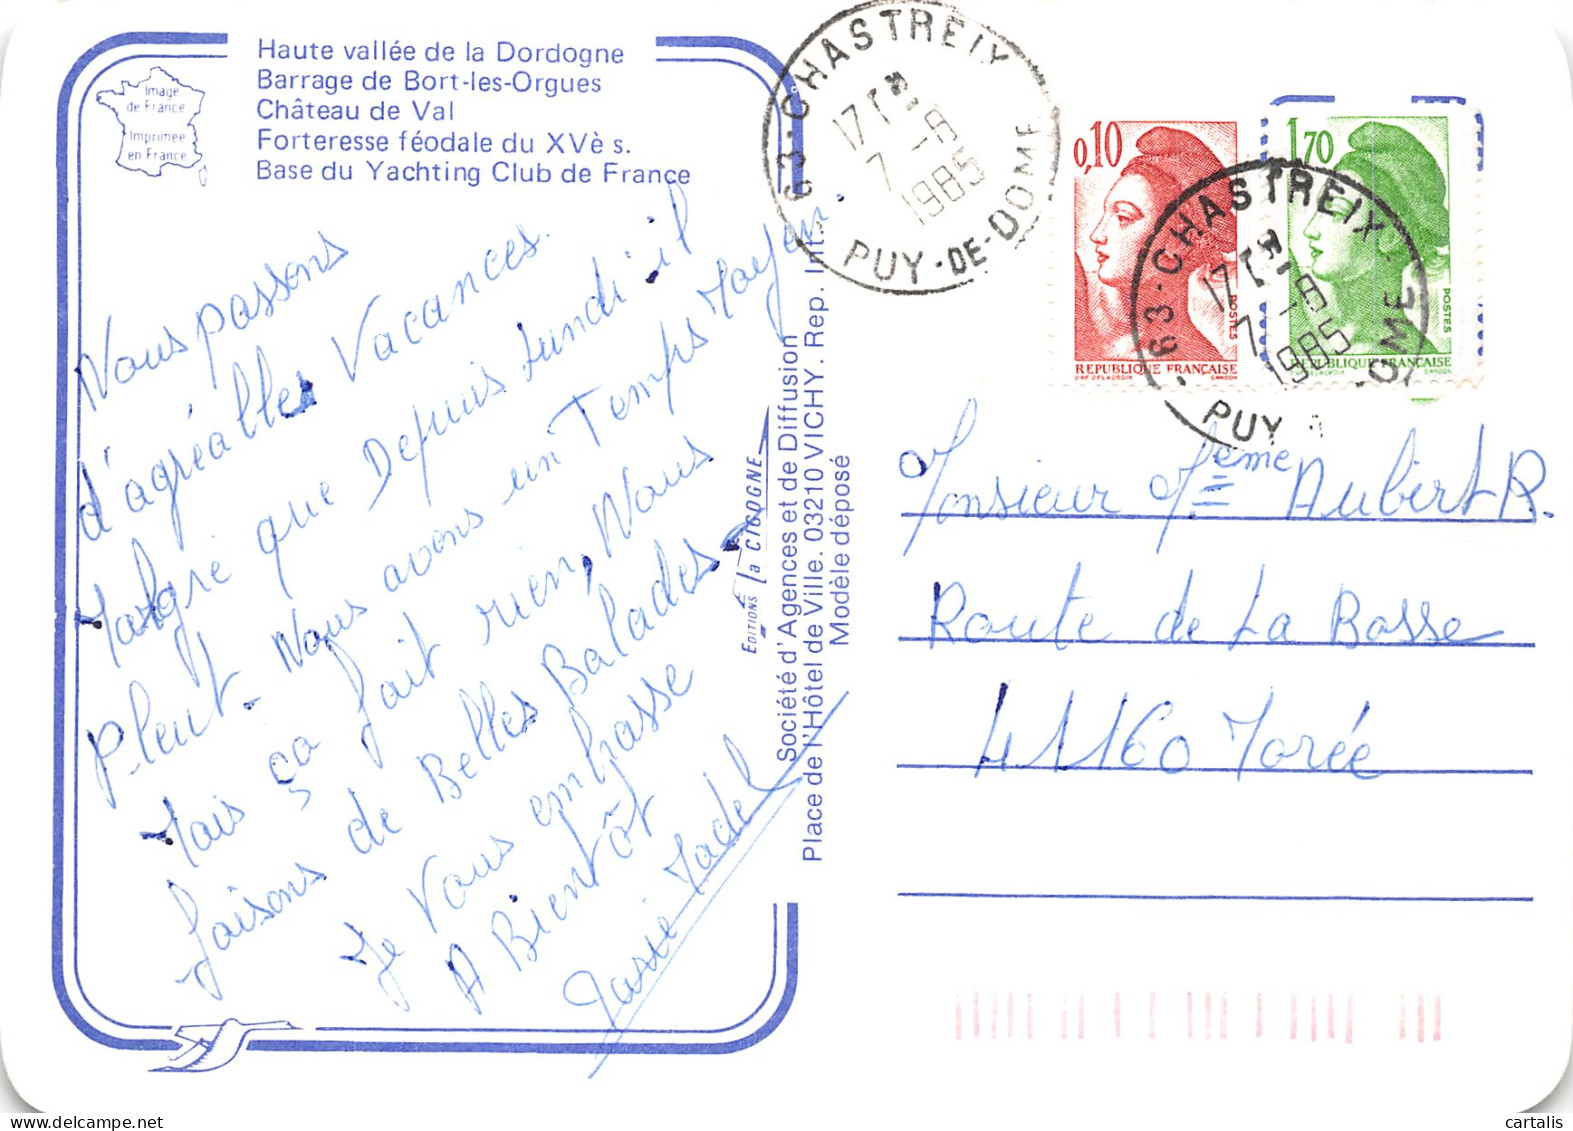 Haute vallée de la Dordogne
Barrage de Bort-les-Orgues
Château de Val
Forteresse féodale du XVè s.
Base du Yachting Club de France
Image
de France
Imprimée
en France
Nous passons
d'agréables Vacances.
Malgré que Depuis Lundi il
pleut. Nous avons un Temps Moyen.
Mais ça fait rien, Nous
faisons de Belles Balades
Je Vous embrasse
A Bientôt
EDITIONS La CIGOGNE
Société d'Agences et de Diffusion
Place de l'Hôtel de Ville. 03210 VICHY. Rep. Int.
Modèle déposé
63-CHASTREIX
17 H
7 -9
1985
PUY-DE-DOME
0,10
POSTES
REPUBLIQUE FRANÇAISE
D'AP. DELACROIX GANDON
1,70
POSTES
REPUBLIQUE FRANÇAISE
D'AP. DELACROIX GANDON
63-CHASTREIX
17 H
7 -9
1985
PUY DOME
Monsieur Meme Aubert R.
Route de La Bosse
41160 Morée
cartalis